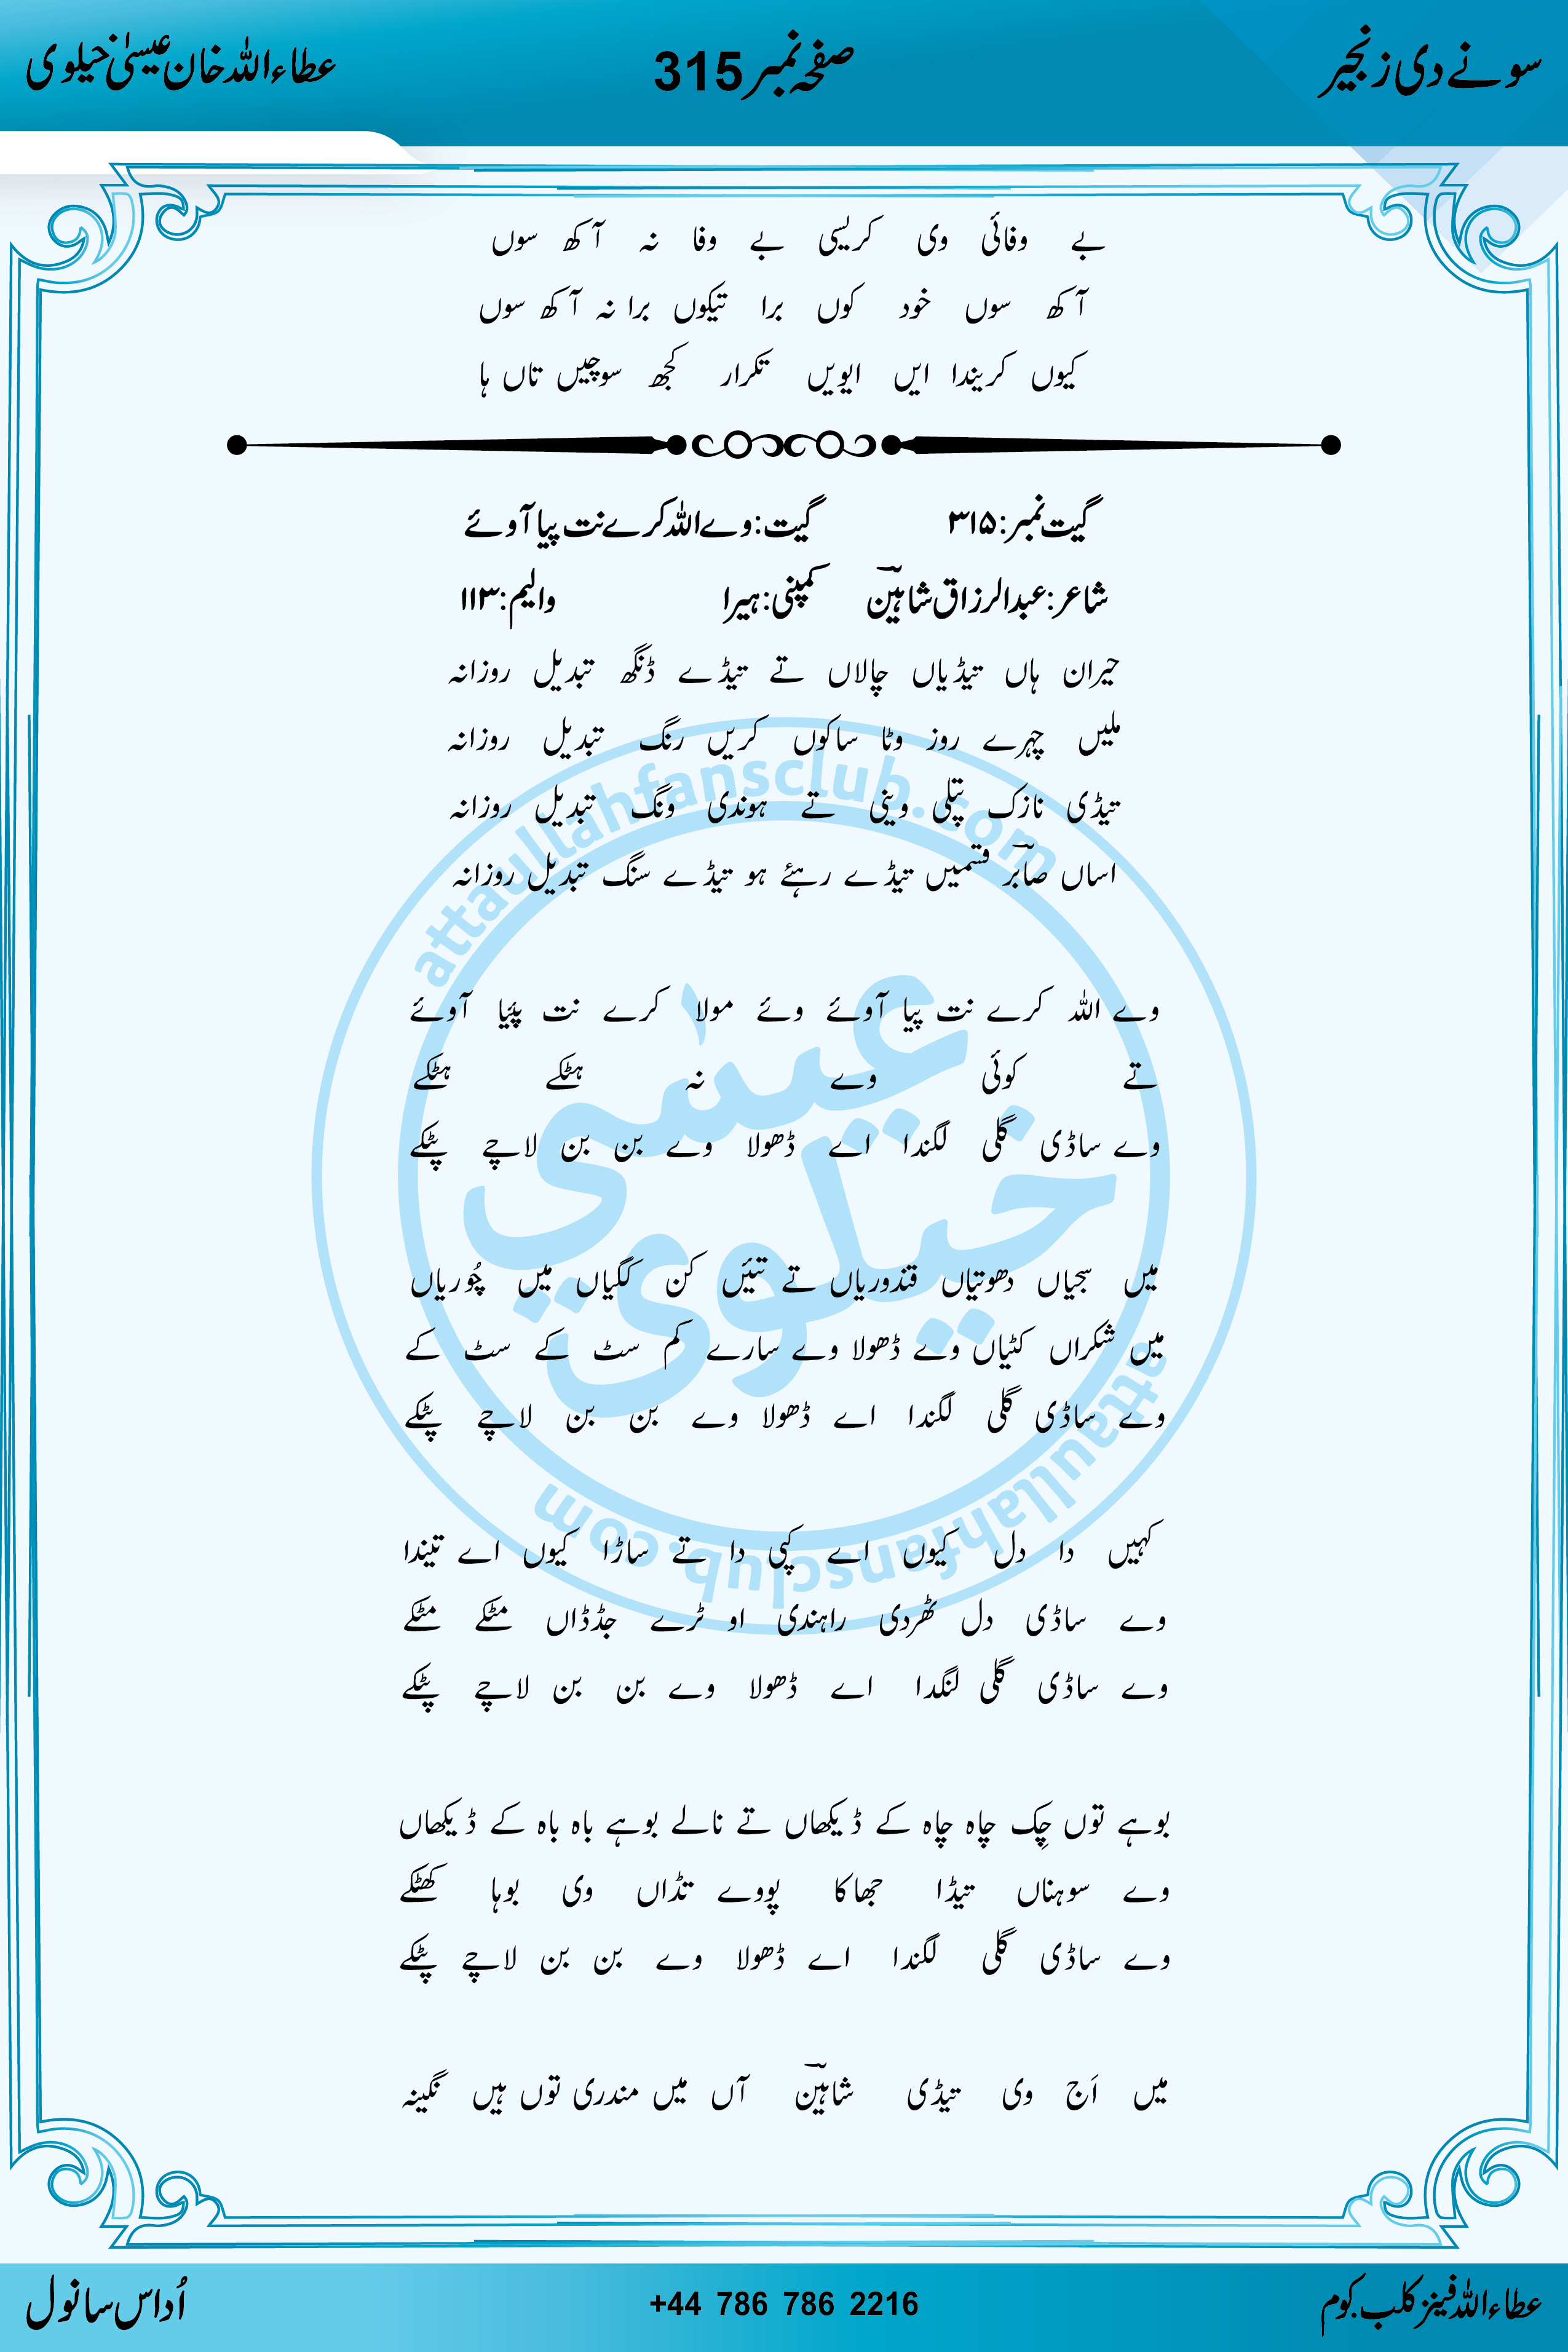 سونے دی زنجیر
صفحہ نمبر 315
عطاء اللہ خان عیسیٰ خیلوی
بے وفائی وی کریسی بے وفا نہ آکھ سوں
آکھ سوں خود کوں برا تیکوں برا نہ آکھ سوں
کیوں کریندا ایں ایویں تکرار کجھ سوچیں تاں ہا
گیت نمبر: ۳۱۵ گیت: وے اللہ کرے نت پیا آوئے
شاعر: عبدالرزاق شاہینؔ کمپنی: ہیرا والیم: ۱۱۳
حیران ہاں تیڈیاں چالاں تے تیڈے ڈنگھ تبدیل روزانہ
ملیں چہرے روز وٹا ساکوں کریں رنگ تبدیل روزانہ
تیڈی نازک پتلی وینی تے ہوندی ونگ تبدیل روزانہ
اساں صابرؔ قسمیں تیڈے رہئے ہو تیڈے سنگ تبدیل روزانہ
وے اللہ کرے نت پیا آوئے وئے مولا کرے نت پئیا آوئے
تے کوئی وے نہ ہٹکے ہٹکے
وے ساڈی گلی لگندا اے ڈھولا وے بن بن لاچے پٹکے
میں سجیاں دھوتیاں قندوریاں تے تئیں کن ککیاں میں چُوریاں
میں شکراں کٹیاں وے ڈھولا وے سارے کم سٹ کے سٹ کے
وے ساڈی گلی لگندا اے ڈھولا وے بن بن لاچے پٹکے
کہیں دا دل کیوں اے کپی دا تے ساڑا کیوں اے تیندا
وے ساڈی دل ٹھردی راہندی او ٹرے جڈڈاں مٹکے مٹکے
وے ساڈی گلی لنگدا اے ڈھولا وے بن بن لاچے پٹکے
بوہے توں چِک چاہ چاہ کے ڈیکھاں تے نالے بوہے باہ باہ کے ڈیکھاں
وے سوہناں تیڈا جھاکا پووے تڈاں وی بوہا کھٹکے
وے ساڈی گلی لگندا اے ڈھولا وے بن بن لاچے پٹکے
میں اَج وی تیڈی شاہینؔ آں میں مندری توں ہیں نگینہ
attaullahfansclub.com
عیسٰی
خیلوی
attaullahfansclub.com
عطاء اللہ فینز کلب.کوم
+44 786 786 2216
اُداس سانول